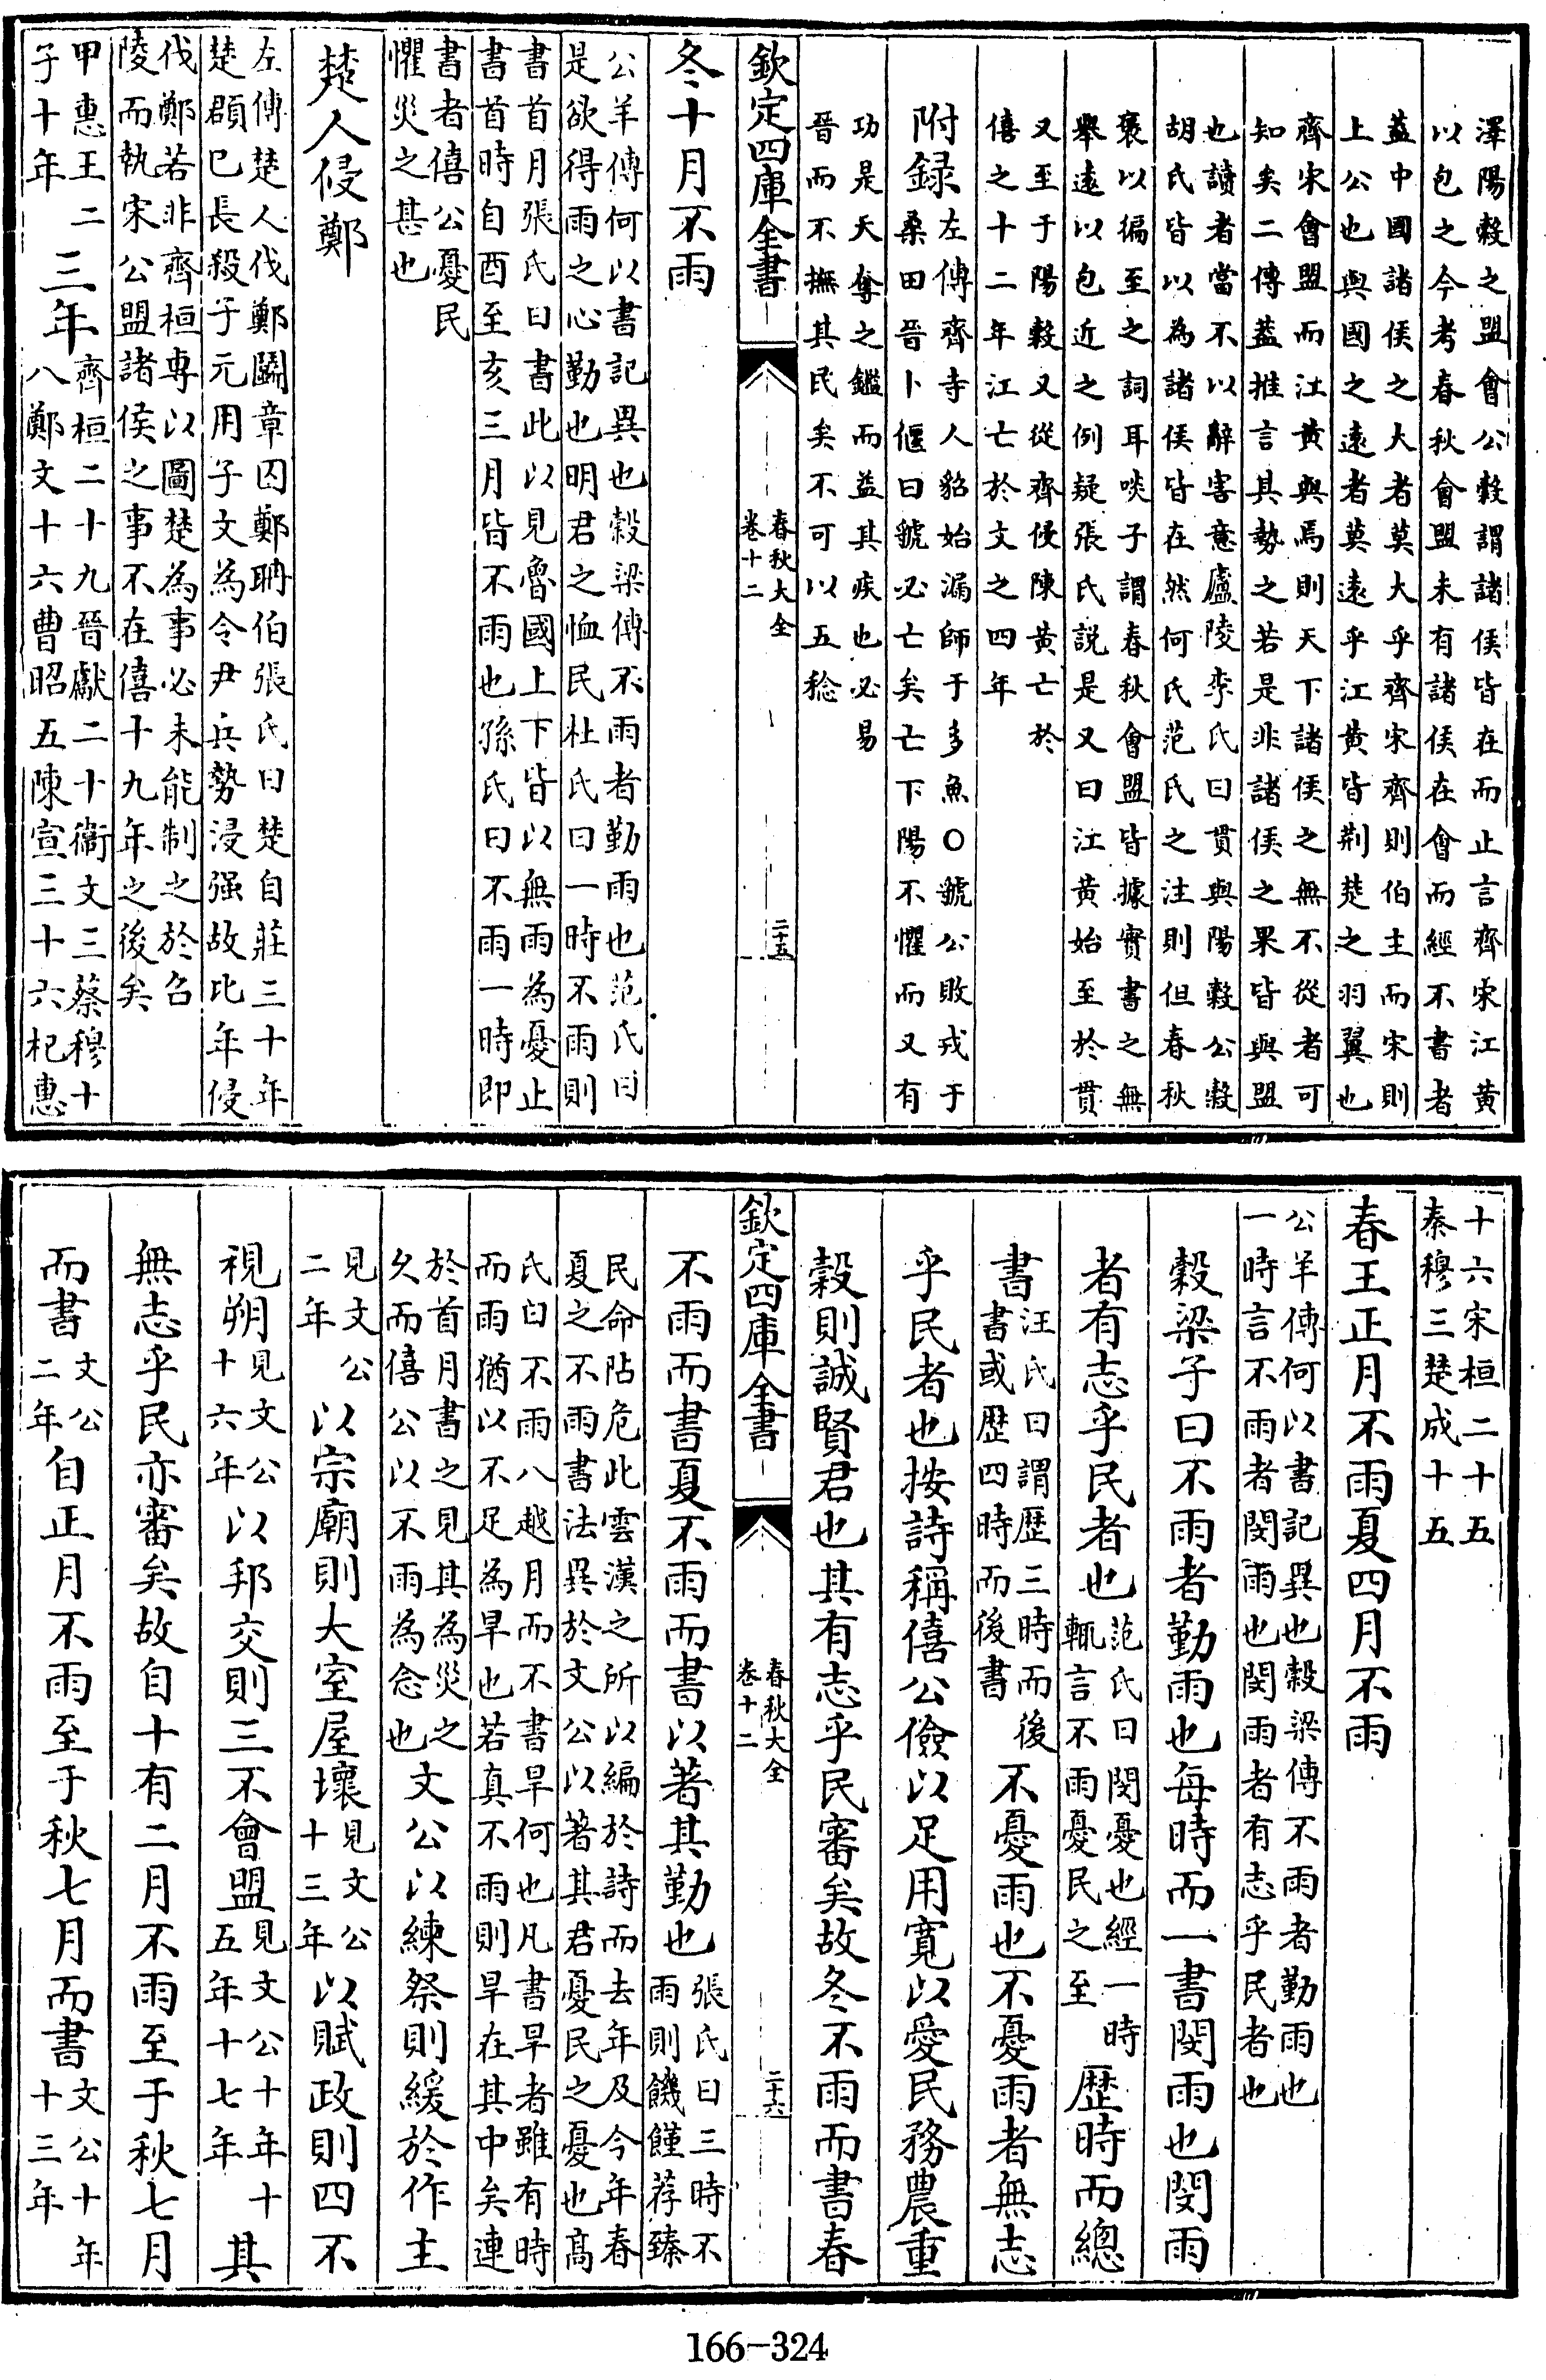 澤陽穀之盟會公穀謂諸侯皆在而止言齊宋江黃
以包之今考春秋會盟未有諸侯在會而經不書者
葢中國諸侯之大者莫大乎齊宋齊則伯主而宋則
上公也與國之遠者莫遠乎江黃皆荆楚之羽翼也
齊宋會盟而江黃與焉則天下諸侯之無不從者可
知矣二傳葢推言其勢之若是非諸侯之果皆與盟
也讀者當不以辭害意廬陵李氏曰貫與陽穀公穀
胡氏皆以為諸侯皆在然何氏范氏之注則但春秋
褒以徧至之詞耳啖子謂春秋會盟皆據實書之無
舉遠以包近之例疑張氏説是又曰江黃始至於貫
又至于陽穀又從齊侵陳黃亡於
僖之十二年江亡於文之四年
附録左傳齊寺人貂始漏師于多魚○虢公敗戎于
桑田晉卜偃曰虢必亡矣亡下陽不懼而又有
功是天奪之鑑而益其疾也必易
晉而不撫其民矣不可以五稔
欽定四庫全書
春秋大全
卷十二
二十五
冬十月不雨
公羊傳何以書記異也穀梁傳不雨者勤雨也范氏曰
是欲得雨之心勤也明君之恤民杜氏曰一時不雨則
書首月張氏曰書此以見魯國上下皆以無雨為憂止
書首時自酉至亥三月皆不雨也孫氏曰不雨一時即
書者僖公憂民
懼災之甚也
楚人侵鄭
左傳楚人伐鄭鬭章囚鄭聃伯張氏曰楚自莊三十年
楚頵巳長殺子元用子文為令尹兵勢浸强故比年侵
伐鄭若非齊桓專以圖楚為事必未能制之於召
陵而執宋公盟諸侯之事不在僖十九年之後矣
甲惠王二
子十年
三年
齊桓二十九晉獻二十衞文三蔡穆十
八鄭文十六曹昭五陳宣三十六杞惠
十六宋桓二十五
秦穆三楚成十五
春王正月不雨夏四月不雨
公羊傳何以書記異也穀梁傳不雨者勤雨也
一時言不雨者閔雨也閔雨者有志乎民者也
穀梁子曰不雨者勤雨也每時而一書閔雨也閔雨
者有志乎民者也
范氏曰閔憂也經一時
輒言不雨憂民之至
歴時而總
書
汪氏曰謂歴三時而後
書或歴四時而後書
不憂雨也不憂雨者無志
乎民者也按詩稱僖公儉以足用寛以愛民務農重
穀則誠賢君也其有志乎民審矣故冬不雨而書春
欽定四庫全書
春秋大全
卷十二
二十六
不雨而書夏不雨而書以著其勤也
張氏曰三時不
雨則饑饉荐臻
民命阽危此雲漢之所以編於詩而去年及今年春
夏之不雨書法異於文公以著其君憂民之憂也髙
氏曰不雨八越月而不書旱何也凡書旱者雖有時
而雨猶以不足為旱也若真不雨則旱在其中矣連
於首月書之見其為災之
久而僖公以不雨為念也
文公以練祭則緩於作主
見文公
二年
以宗廟則大室屋壞
見文公
十三年
以賦政則四不
視朔
見文公
十六年
以邦交則三不會盟
見文公十年十
五年十七年
其
無志乎民亦審矣故自十有二月不雨至于秋七月
而書
文公
二年
自正月不雨至于秋七月而書
文公十年
十三年
166-324